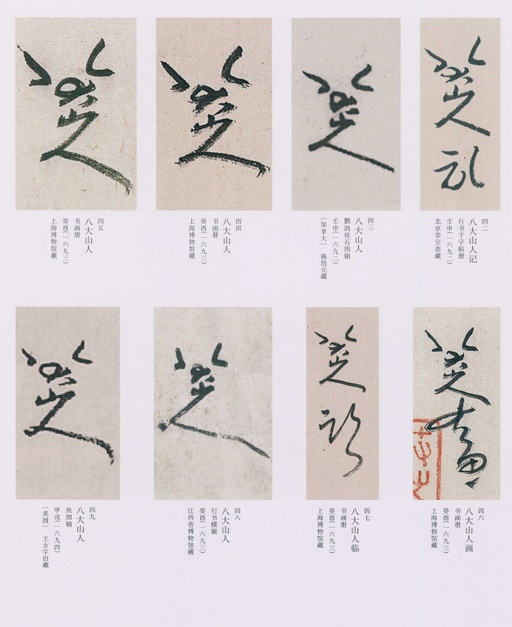 八大山人記
四二
八大山人记
行书千字帖册
壬申(一六九二)
北京荣宝斋藏
八大山人
四三
八大山人
壬申(一六九二)
八大山人
四四
八大山人
书画册
癸酉(一六九三)
上海博物馆藏
八大山人
四五
八大山人
书画册
癸酉(一六九三)
上海博物馆藏
八大山人画
四六
八大山人画
书画册
癸酉(一六九三)
上海博物馆藏
八大山人临
四七
八大山人临
书画册
癸酉(一六九三)
上海博物馆藏
八大山人
四八
八大山人
癸酉(一六九三)
江西省博物馆藏
八大山人
四九
八大山人
鱼图轴
甲戌(一六九四)
[美国] 王方宇旧藏